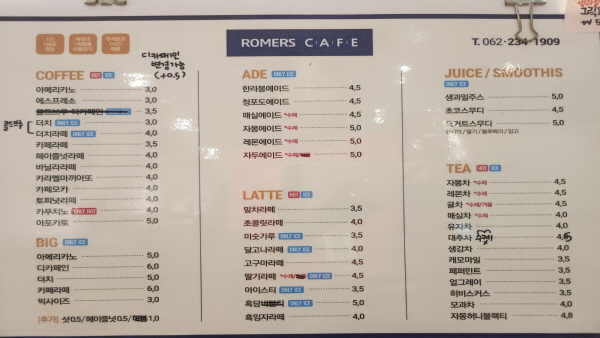 ROMERS CAFE
T. 062-234-1909
디카페인
변경가능
(+0.5)
COFFEE HOT ICE
아메리카노 3,0
에스프레소 3,0
3,5
더치 ONLY ICE 3,0
더치라떼 ONLY ICE 4,0
카페라떼 3,5
헤이즐넛라떼 4,0
바닐라라떼 4,0
카라멜마끼아또 4,0
카페모카 4,0
토피넛라떼 4,0
카푸치노 ONLY HOT 4,0
아포가토 5,0
BIG ONLY ICE
아메리카노 5,0
디카페인 6,0
더치 5,0
카페라떼 6,0
빅사이즈 3,0
[추가] 샷0.5/헤이즐넛0.5/ 1,0
ADE ONLY ICE
한라봉에이드 4,5
청포도에이드 4,5
매실에이드 *수제 4,5
자몽에이드 *수제 5,0
레몬에이드 *수제 5,0
자두에이드 *수제 5,0
LATTE HOT ICE
말차라떼 3,5
초콜릿라떼 4,0
미숫가루 ONLY ICE 3,5
달고나라떼 ONLY ICE 4,0
고구마라떼 4,5
딸기라떼 *수제 ONLY ICE 4,5
아이스티 ONLY ICE 3,5
흑당 5,0
흑임자라떼 4,0
JUICE / SMOOTHIS
ONLY ICE
생과일주스 5,0
초코스무디 4,5
요거트스무디 5,0
TEA HOT ICE
자몽차 *수제 4,5
레몬차 *수제 4,5
귤차 *수제/겨울 4,5
매실차 *수제 4,0
유자차 4,0
대추차
생강차 4,0
캐모마일 3,5
페퍼민트 3,5
얼그레이 3,5
히비스커스 3,5
모과차 4,0
자몽허니블랙티 4,8